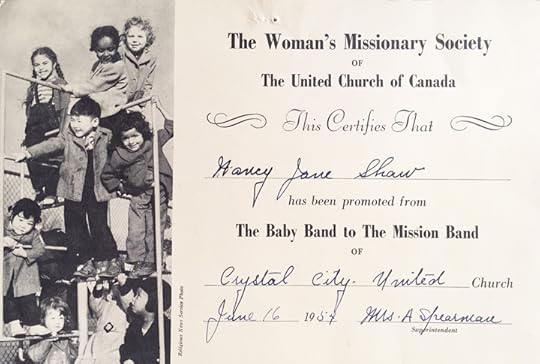 The Woman's Missionary Society
OF
The United Church of Canada
This Certifies That
Nancy Jane Shaw
has been promoted from
The Baby Band to The Mission Band
OF
Crystal City United Church
June 16 1954 Mrs. A Spearman
Superintendent
Religious News Service Photo